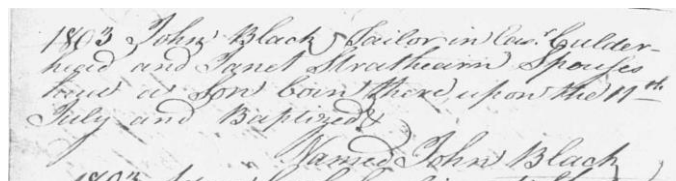 1803 John Black Tailor in Eas.^t Culder-
head and Janet Strathearn Spouses
had a Son born there upon the 11th
July and Baptized
Named John Black
1803